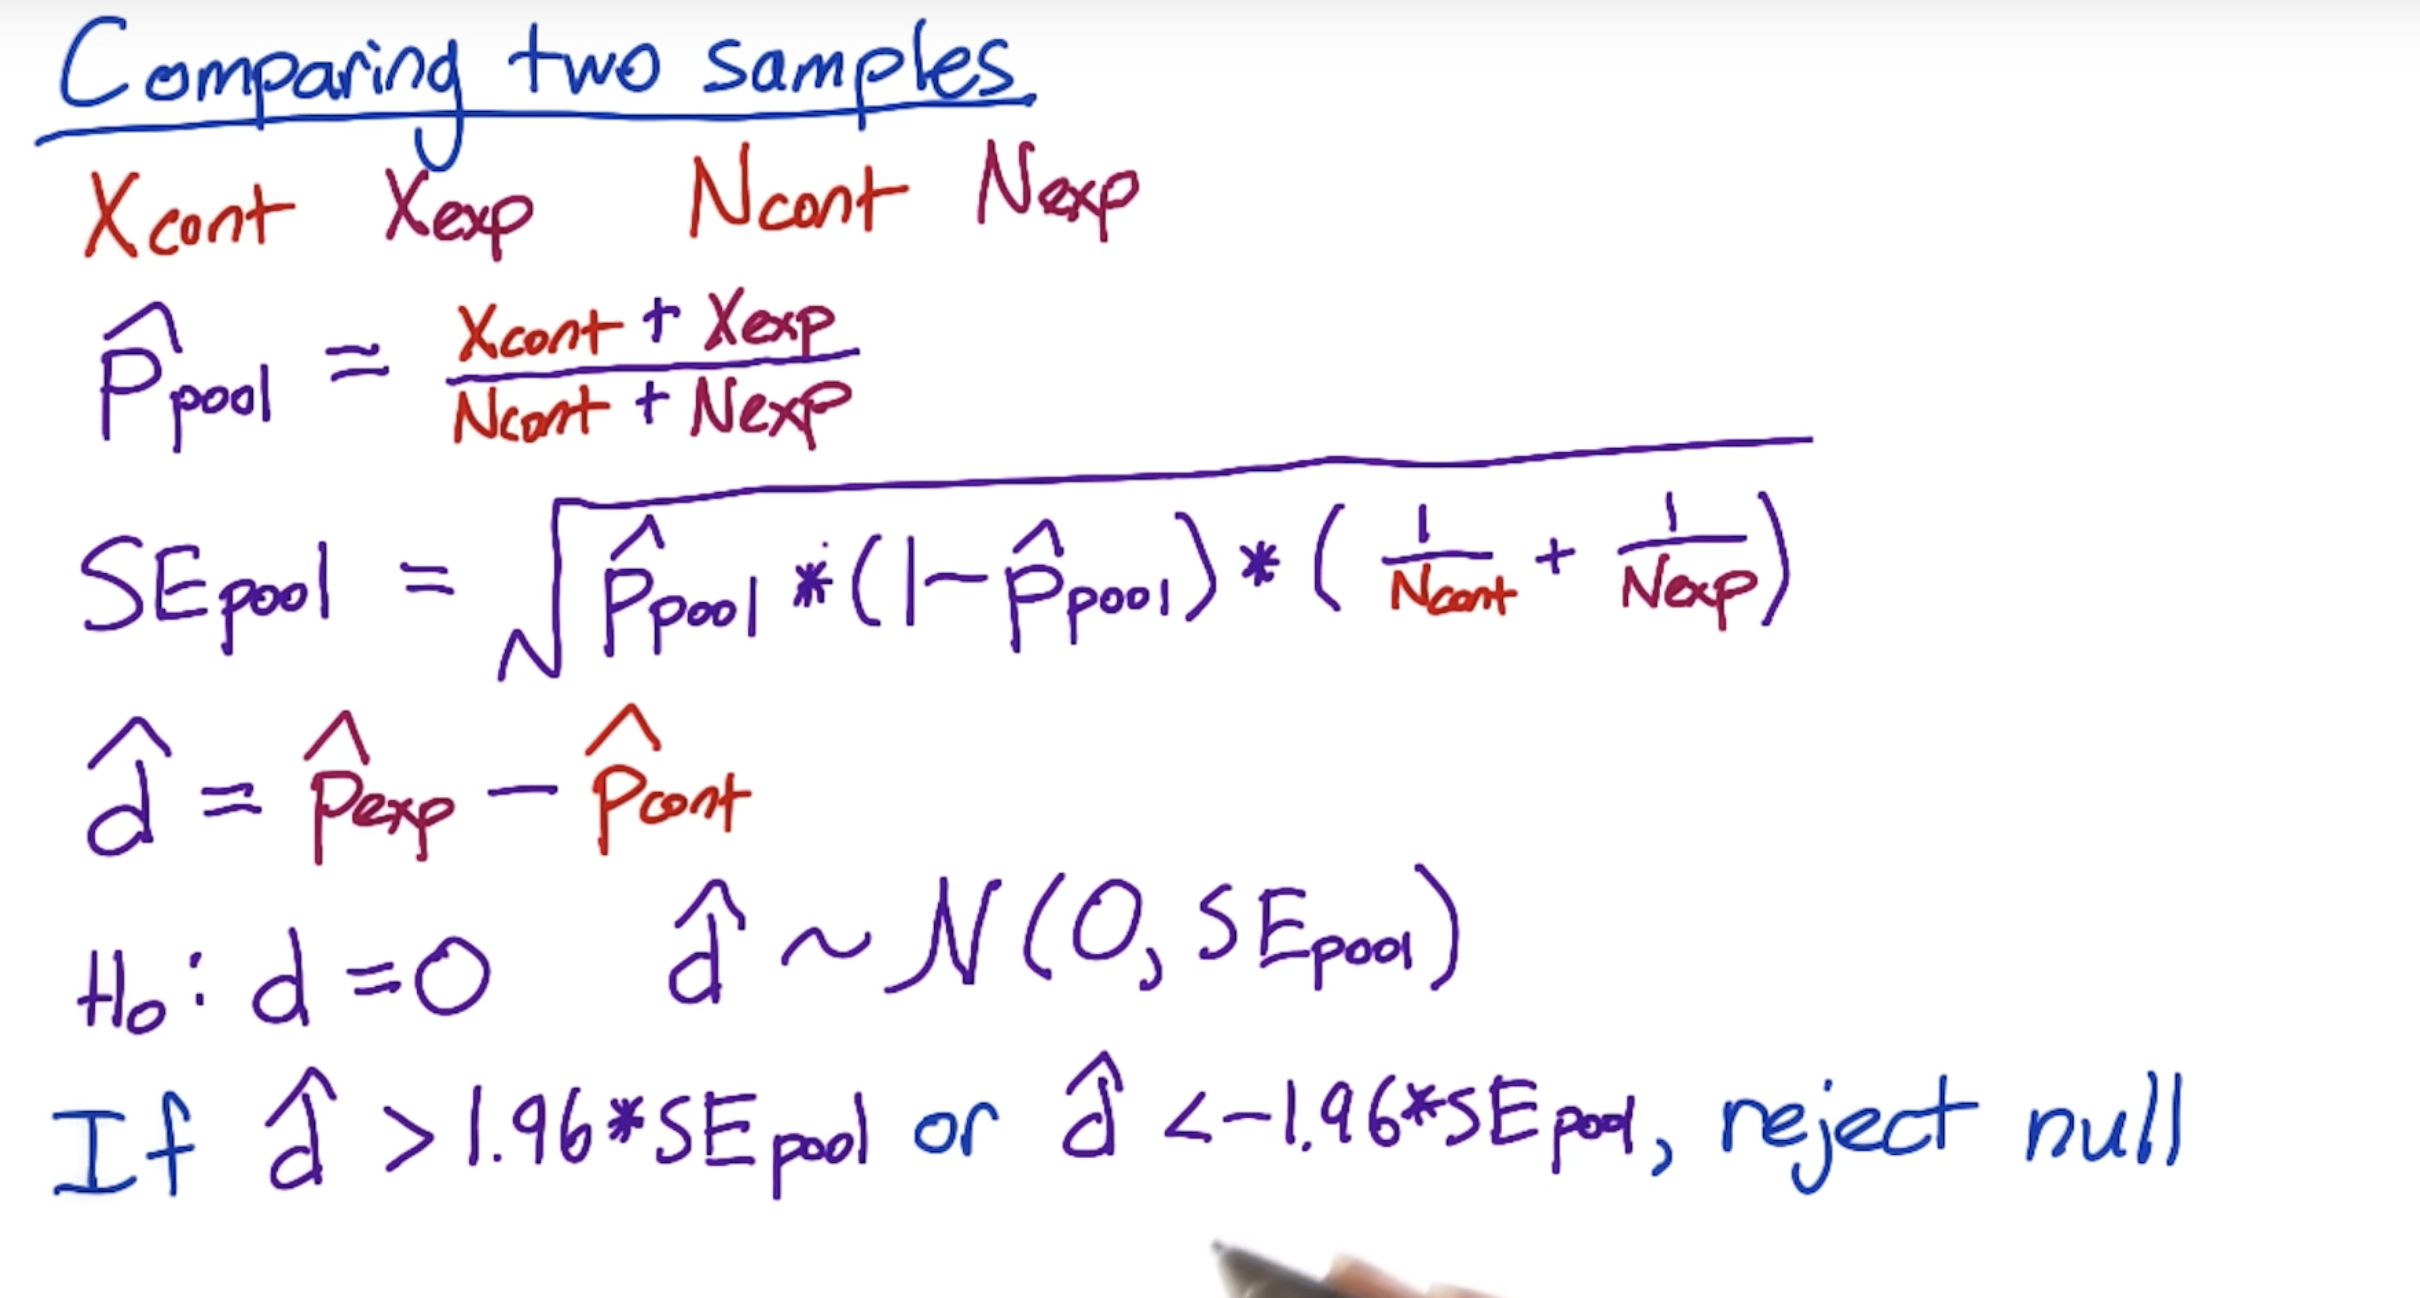 Comparing two samples
Xcont Xexp Ncont Nexp
P̂pool = (Xcont + Xexp) / (Ncont + Nexp)
SEpool = √(P̂pool * (1-p̂pool) * (1/Ncont + 1/Nexp))
d̂ = p̂exp - p̂cont
Ho: d=0 d̂ ~ N(0, SEpool)
If d̂ > 1.96*SEpool or d̂ < -1.96*SEpool, reject null